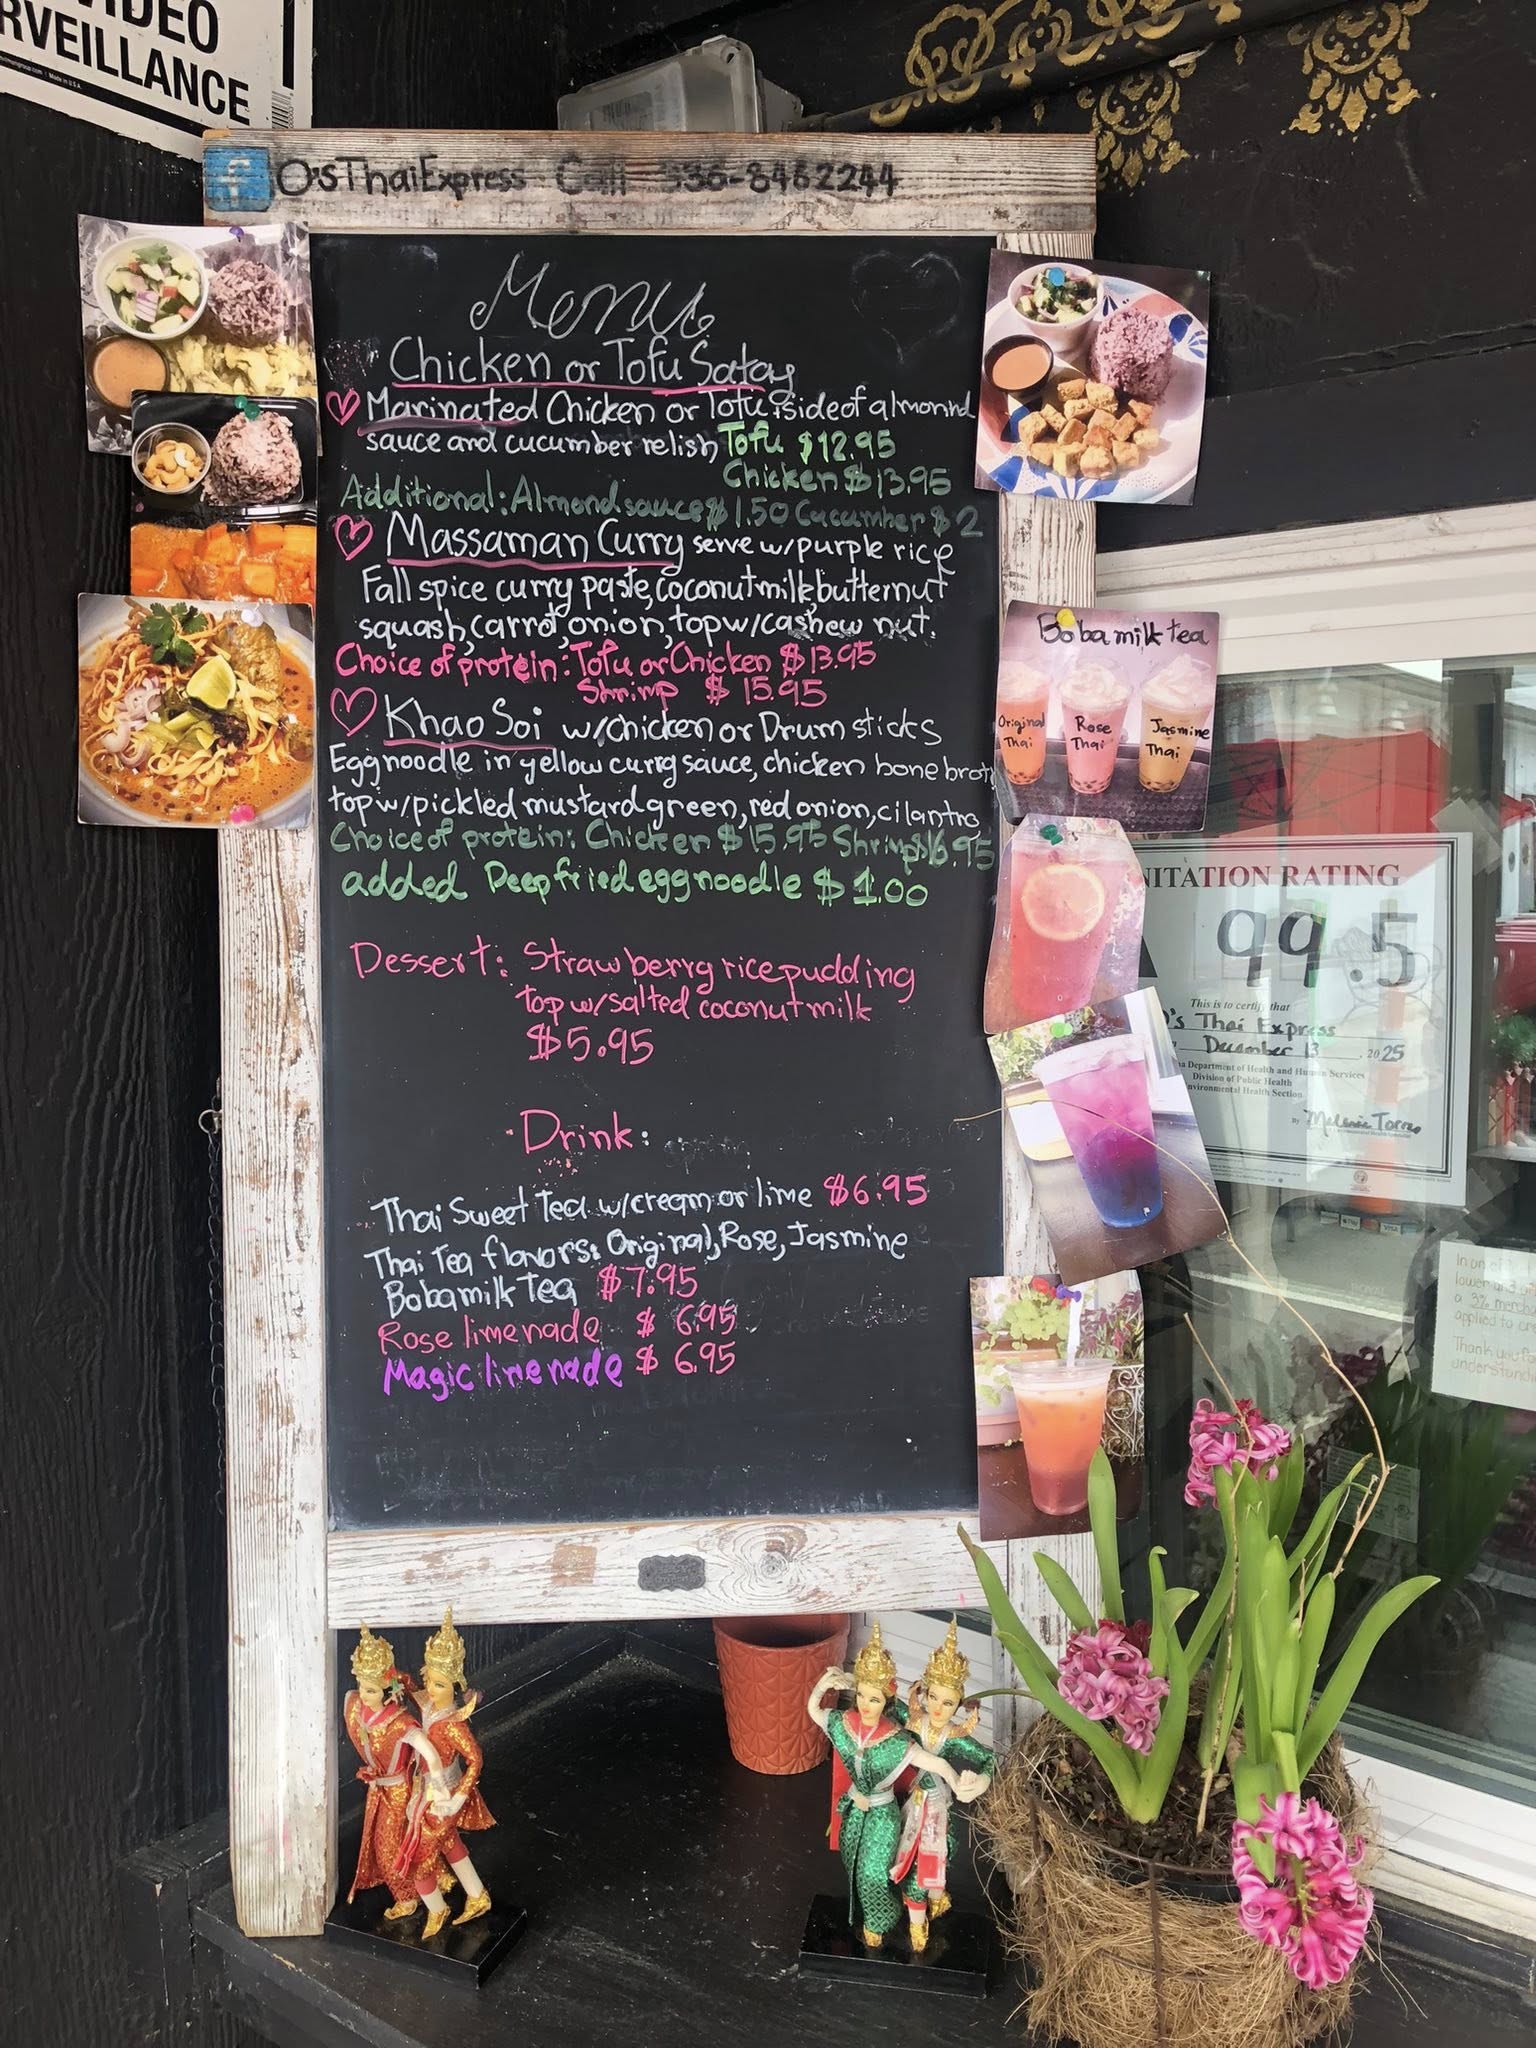 VIDEO
SURVEILLANCE
Made in U.S.A.
f O'sThaiExpress Call 336-8462244
Menu
Chicken or Tofu Satay
Marinated Chicken or Tofu + side of almond
sauce and cucumber relish Tofu $12.95
Chicken $13.95
Additional: Almond sauce $1.50 Cucumber $2
Massaman Curry serve w/purple rice
Fall spice curry paste, coconut milk, butternut
squash, carrot, onion, top w/cashew nut.
Choice of protein: Tofu or Chicken $13.95
Shrimp $15.95
Khao Soi w/chicken or Drum sticks
Egg noodle in yellow curry sauce, chicken bone brot
top w/pickled mustard green, red onion, cilantro
Choice of protein: Chicken $15.95 Shrimp $16.95
added Deep fried egg noodle $1.00
Dessert: Strawberry rice pudding
top w/salted coconut milk
$5.95
Drink:
Thai Sweet Tea w/cream or lime $6.95
Thai Tea flavors: Original, Rose, Jasmine
Boba milk Tea $7.95
Rose limenade $6.95
Magic limenade $6.95
Boba milk tea
Original Thai
Rose Thai
Jasmine Thai
NITATION RATING
A 99.5
This is to certify that
O's Thai Express
December 13, 2025
na Department of Health and Human Services
Division of Public Health
Environmental Health Section
By
lower and
a 3% merch
applied to cre
Thank you fo
understandin